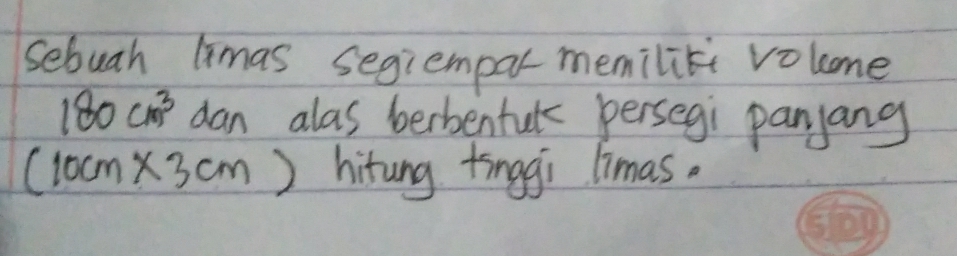 Sebuah limas segiempat memiliki volume
180 cm³ dan alas berbentuk persegi panjang
(10cm X 3 cm) hitung tinggi limas.
SIDU